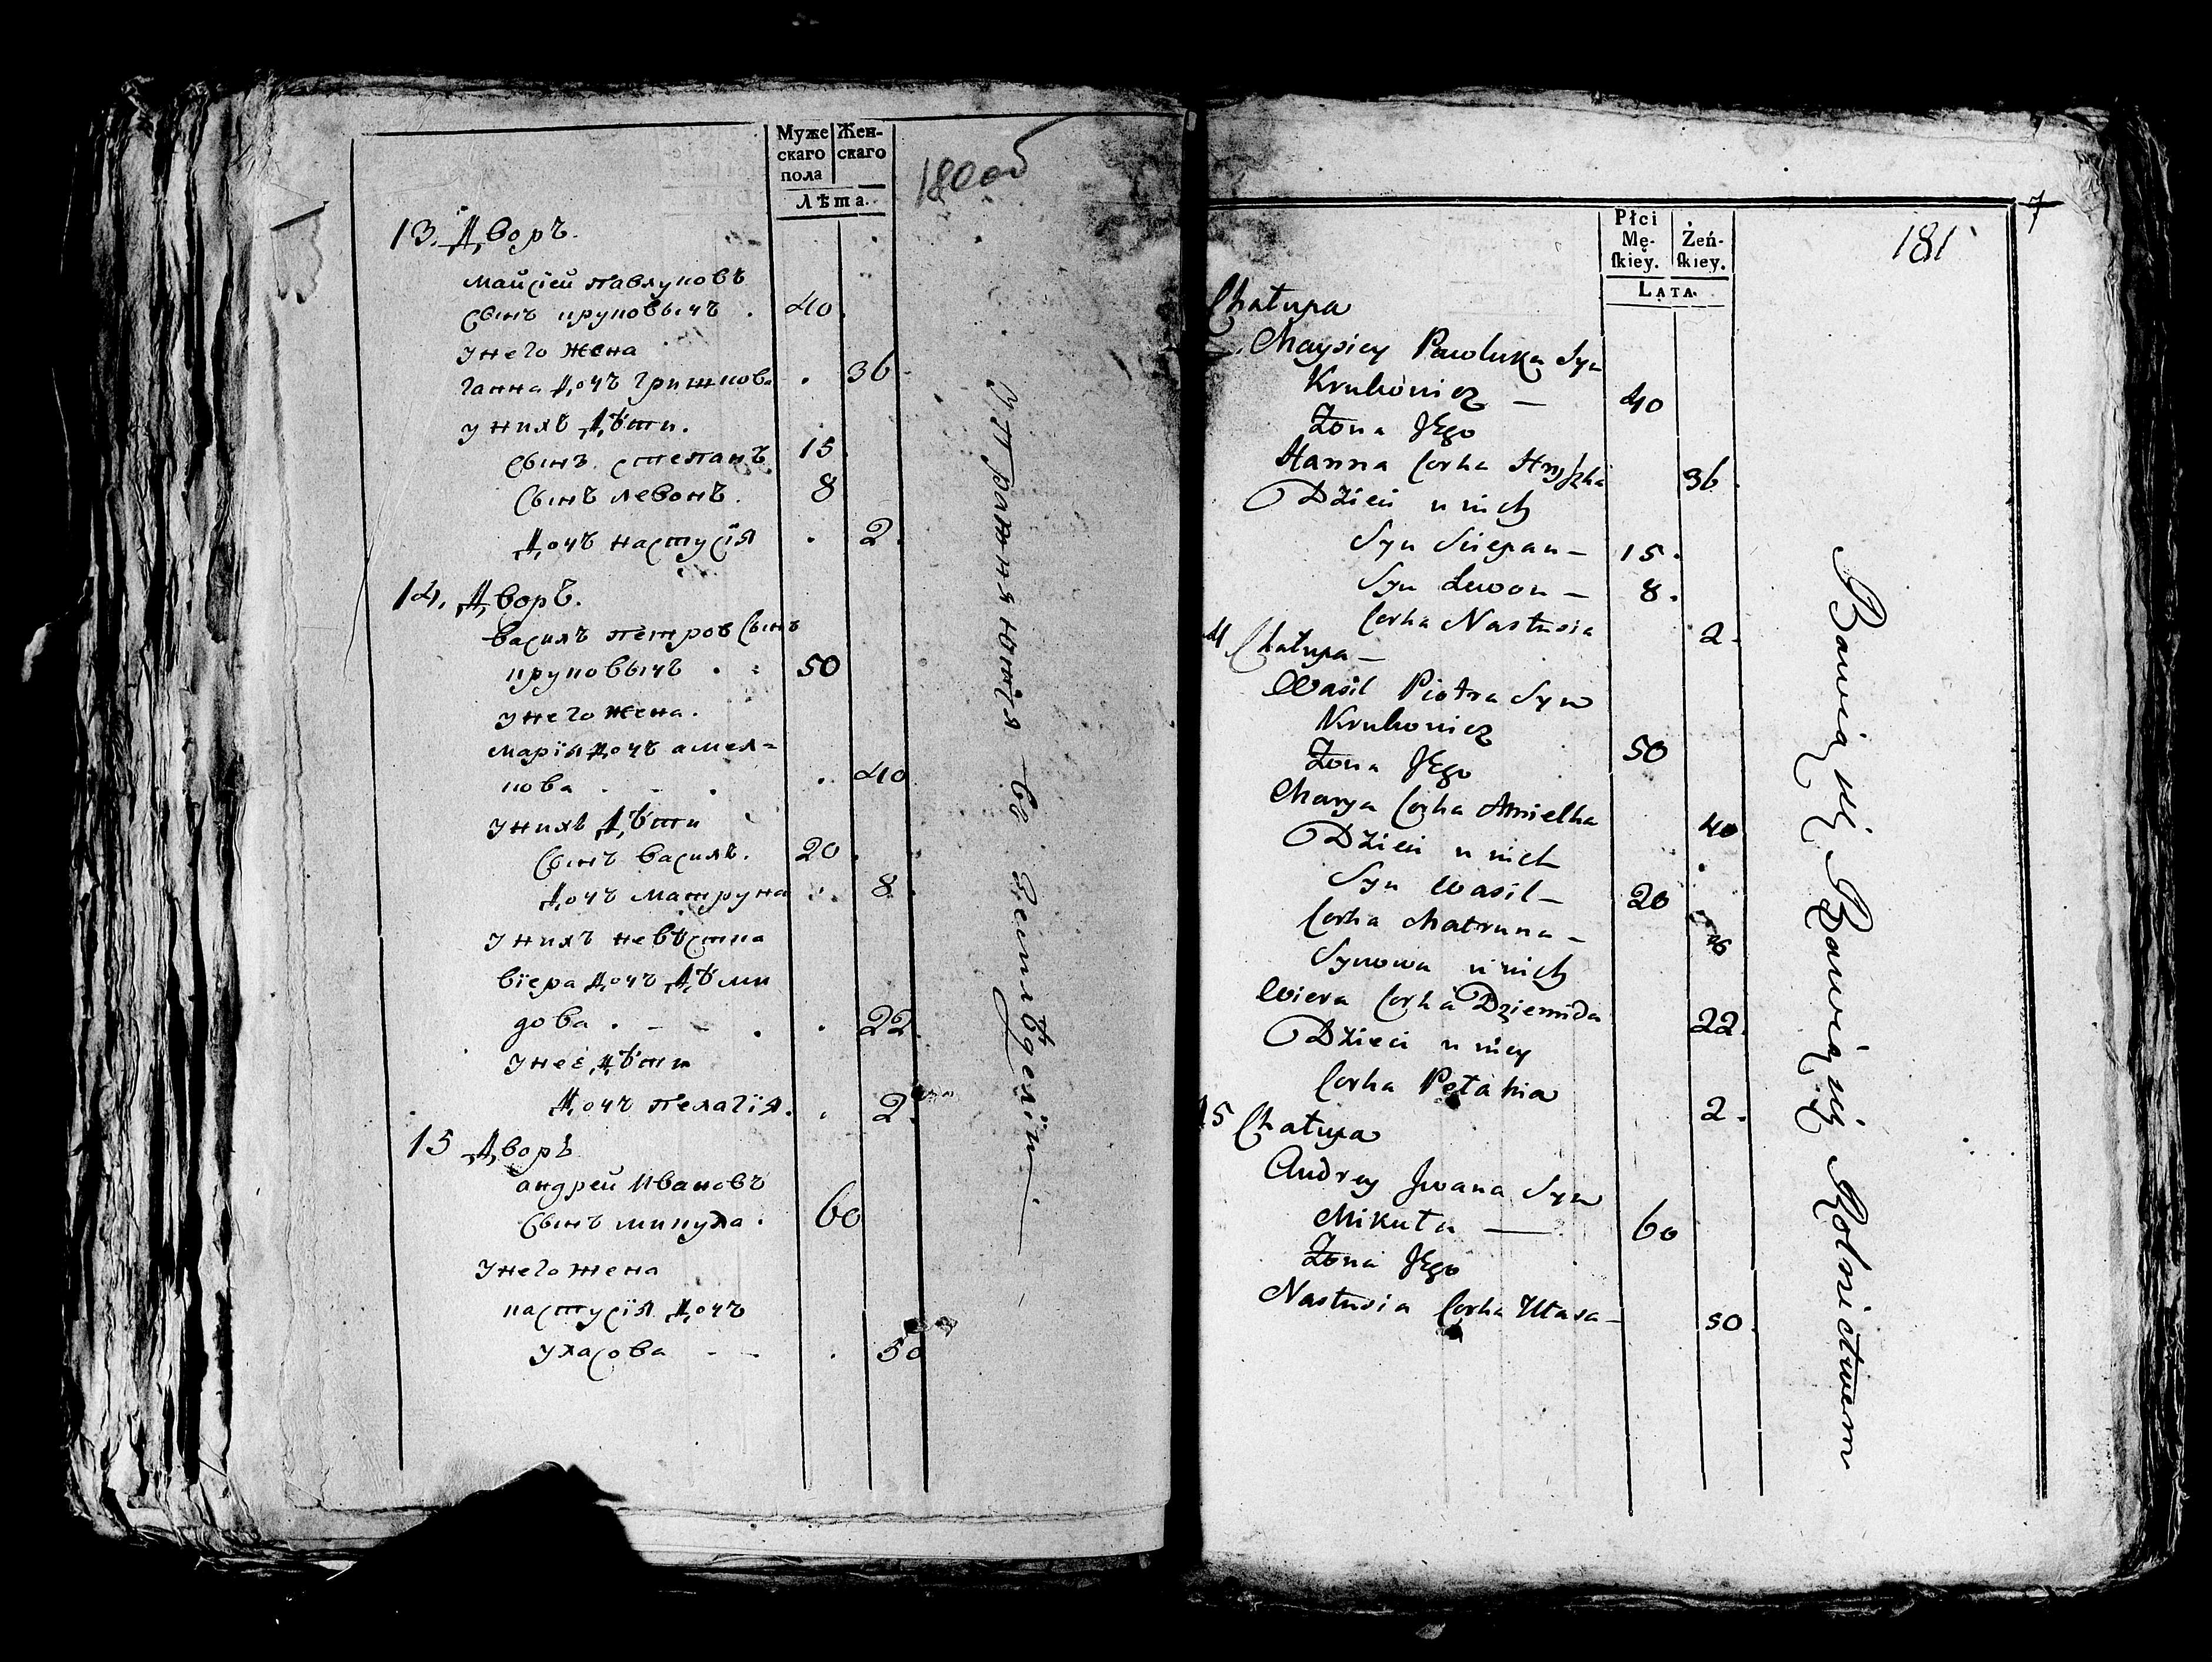 Муже Жен-
скаго скаго
пола
Лѣта.
180 об
13. Дворъ.
Майсiей Павлуковъ
сынъ круковычъ . 40
у него жена
ганна дочъ Гришкова . 36
у нихъ дѣти.
сынъ степанъ 15
сынъ левонъ. 8
дочъ настусія . 2.
14. Дворъ.
василъ петров сынъ
круковычъ . . 50
у него жена.
марія дочъ амел=
кова . . . 40
у нихъ дѣти
сынъ василъ. 20.
дочъ матруна . 8.
у нихъ невѣстка
віера дочъ дѣми
дова . - - . . 22.
у неё дѣти
дочъ пелагія. . 2.
15 Дворъ
андрей Ивановъ
сынъ микула . 60
у него жена
настусія дочъ
уласова - - . 50
упражняются въ земледелїи
7
181
Płci
Mę- Żeń-
skiey. skiey.
LATA.
Chatupa
Maysiey Pawluka Syn
Krukowicz — 40
Żona Jego
Hanna Corka Hryszka 36.
Dzieci u nich
Syn Sciepan — 15.
Syn Lewon — 8.
Corka Nastusia 2.
4 Chatupa —
Wasil Piotra Syn
Krukowicz 50
Żona Jego
Marya Corka Amielka 40
Dzieci u nich
Syn Wasil — 20
Corka Matruna — 8
Synowa u nich
Wiera Corka Dziemida 22.
Dzieci u niey
Corka Petahia 2.
15 Chatupa
Andrey Jwana Syn
Mikuta — 60
Żona Jego
Nastusia Corka Utasa — 50.
Bawią się Bawią się Rolnictwem